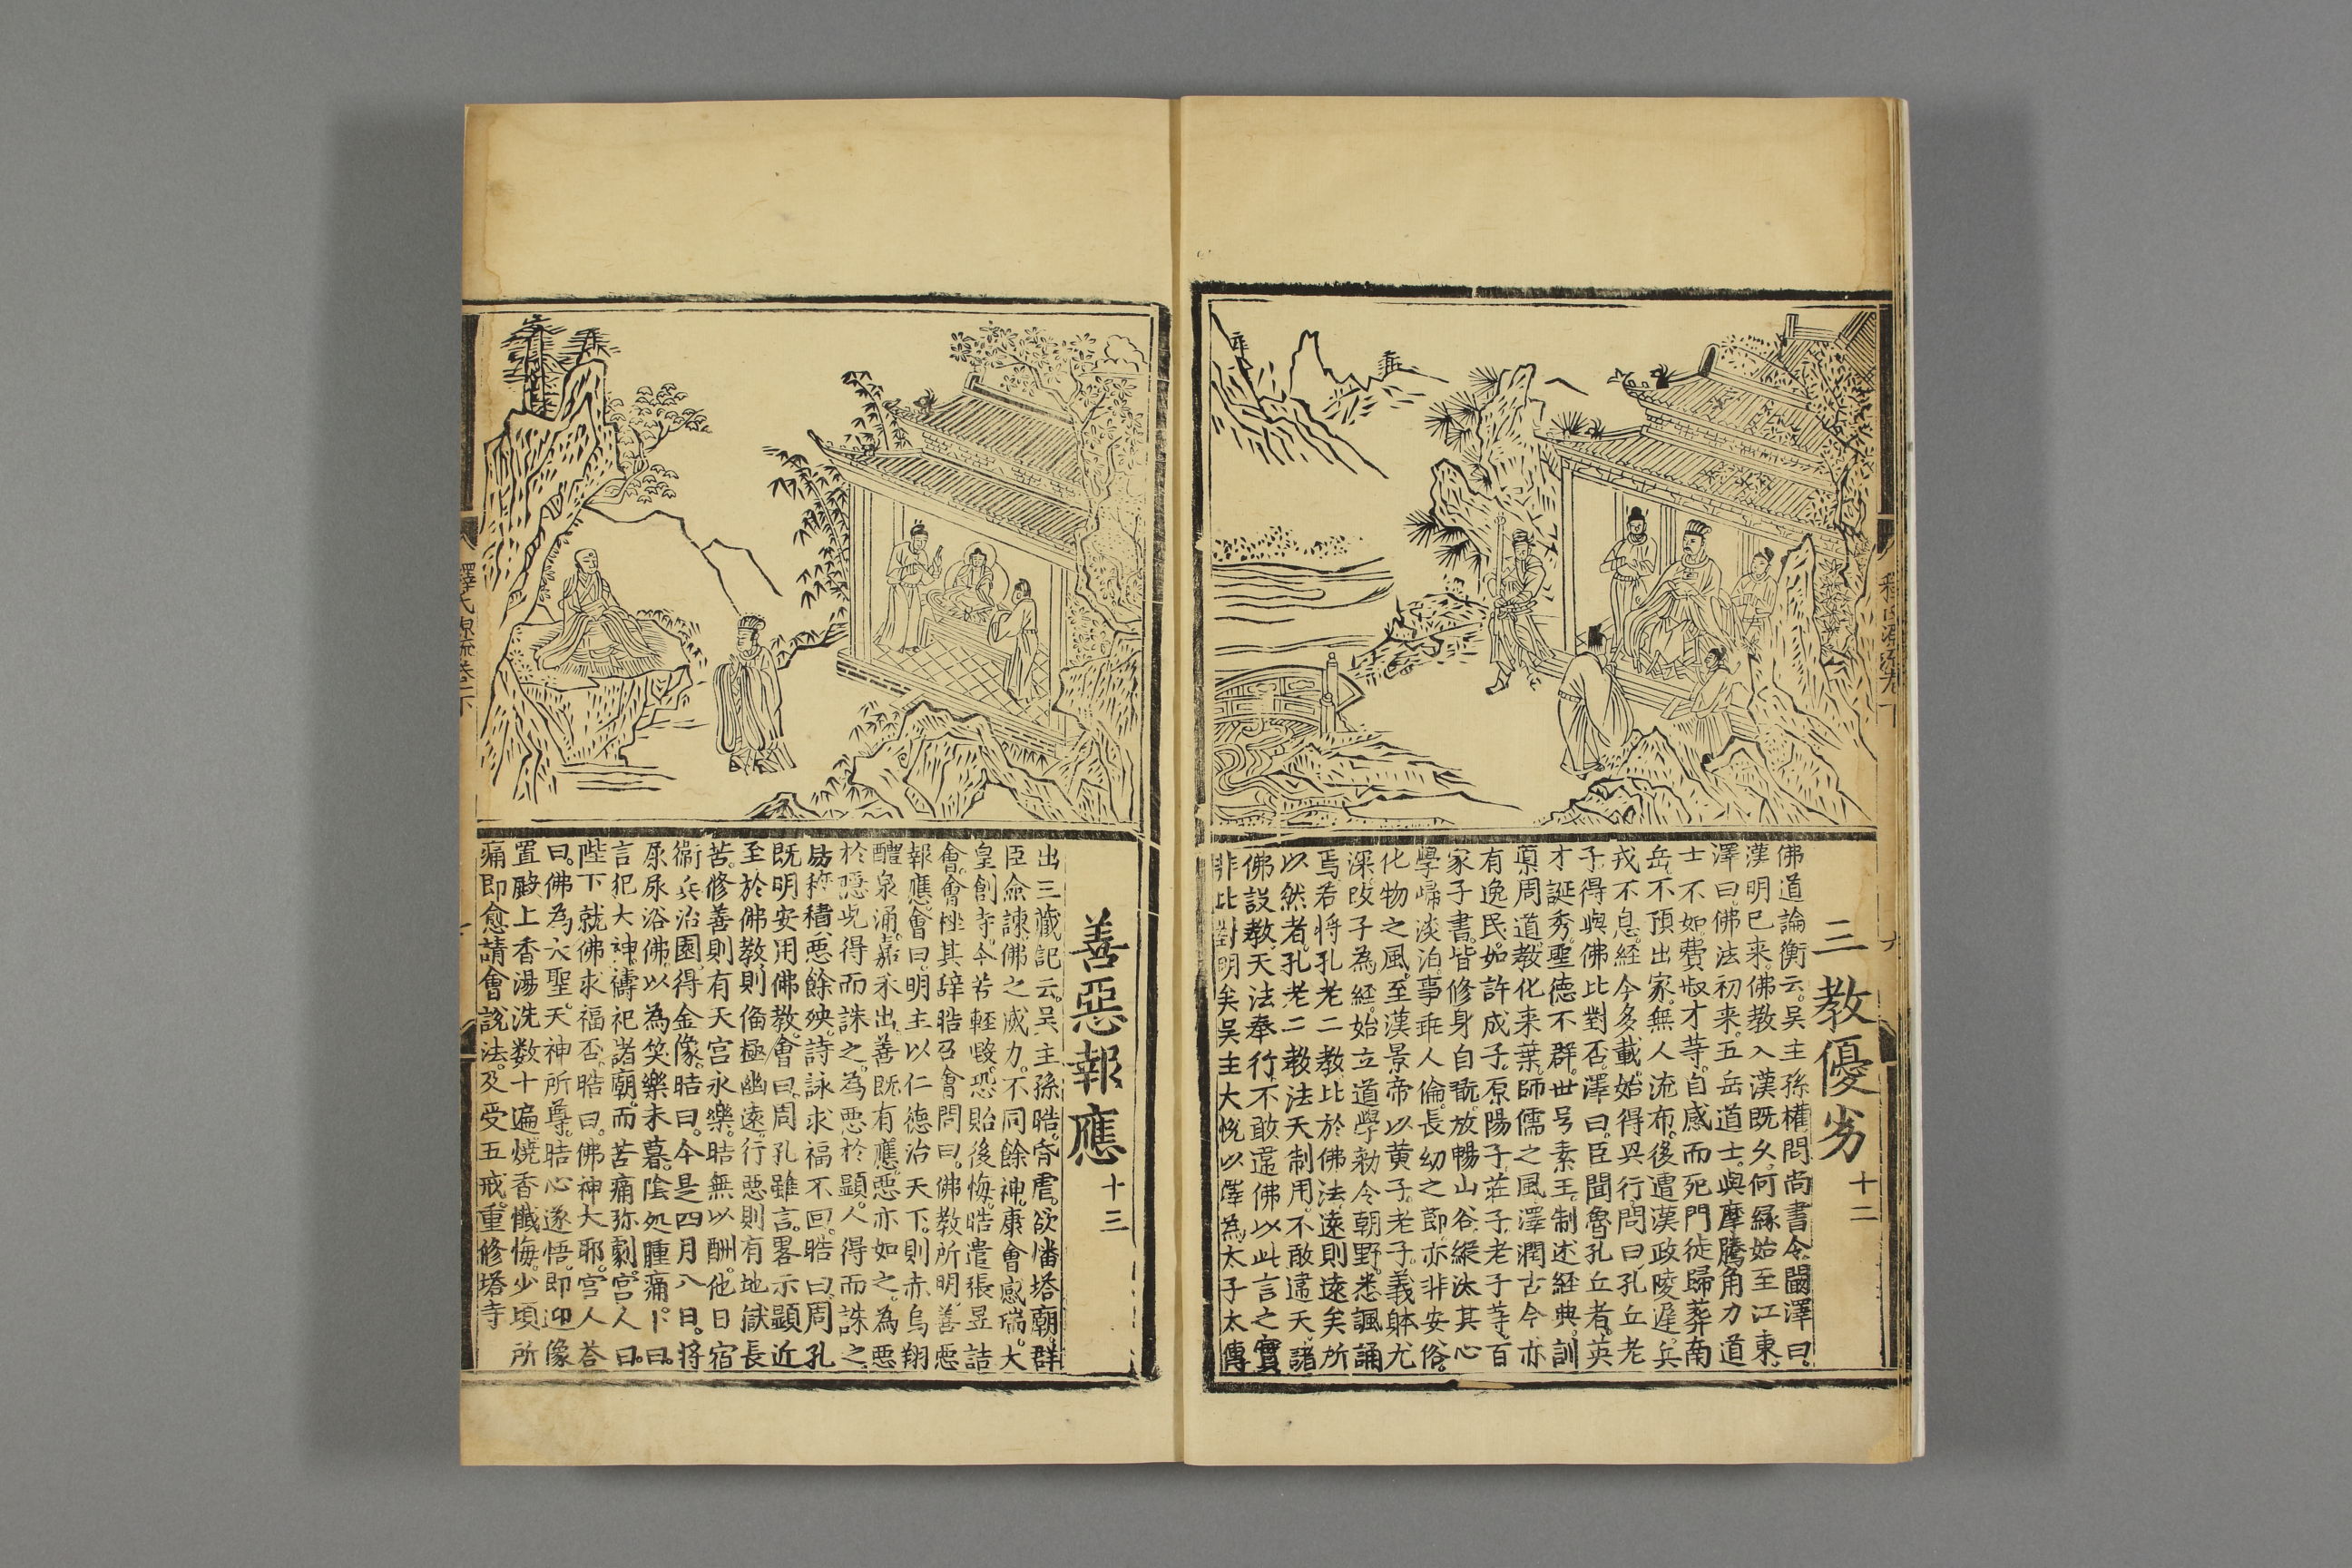 三教優劣 十二
佛道論衡云。吳主孫權問尚書令闞澤曰。
漢明已来。佛教入漢既久。何縁始至江東。
澤曰。佛法初来。五岳道士。與摩騰角力。道
士不如。費叔才等。自感而死。門徒歸葬南
岳。不預出家。無人流布。後遭漢政陵遲。兵
戎不息。経今多載。始得興行。問曰。孔丘老
子。得與佛比對否。澤曰。臣聞魯孔丘者。英
才誕秀。聖德不群。世号素王。制述経典。訓
奨周道。教化来葉。師儒之風。澤潤古今。亦
有逸民。如許成子。原陽子。莊子。老子等。百
家子書。皆修身自翫。放暢山谷。縱汰其心
學歸淡泊。事乖人倫。長幼之節。亦非安俗。
化物之風。至漢景帝。以黄子。老子。義躰尤
深。改子為経。始立道學。勑令朝野。悉諷誦
焉。若将孔老二教比於佛法。遠則遠矣。所
以然者。孔老二教法天制用。不敢違天。諸
佛設教。天法奉行。不敢違佛。以此言之。實
非比對明矣。吴主大悦。以澤為太子太傅
善惡報應 十三
出三藏記云。吴主孫晧。虐。欲燔塔廟。群
臣僉諌。佛之威力。不同餘神。康會感瑞。大
皇創寺。今若輕毀。恐貽後悔。晧遣張昱詰
會。會挫其辭。晧召會問曰。佛教所明。善惡
報應。會曰。明主以仁德治天下。則赤烏翔
醴泉涌。嘉禾出。善既有應。惡亦如之。為惡
於隱。鬼得而誅之。為惡於顯。人得而誅之
易称積惡餘殃。詩詠求福不回。晧曰。周孔
既明。安用佛教。會曰。周孔雖言。畧示顯近
至於佛教。則俻極幽遠。行惡則有地獄長
苦。修善則有天宫永樂。晧無以酬。他日宿
衛兵治園。得金像。晧曰。今是四月八日。将
尿尿浴佛。以為笑樂。未暮。陰処腫痛。卜曰。
言犯大神。禱祀諸廟。而苦痛弥劇。宫人曰。
陛下就佛求福否。晧曰。佛神大耶。宫人荅
曰。佛為大聖。天神所尊。晧心遂悟。即迎像
置殿上。香湯洗数十遍。焼香懺悔。少頃所
痛即愈。請會說法。及受五戒。重修塔寺
釋氏源流卷二下